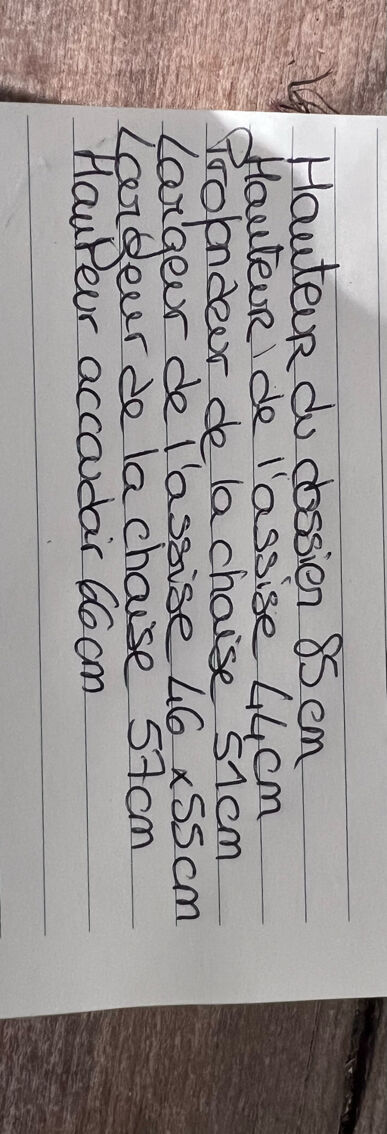 Hauteur du dossier 85cm
Hauteur de l'assise 44cm
Profondeur de la chaise 51cm
Largeur de l'assise 46 x 55cm
Largeur de la chaise 57cm
Hauteur accoudoir 66cm